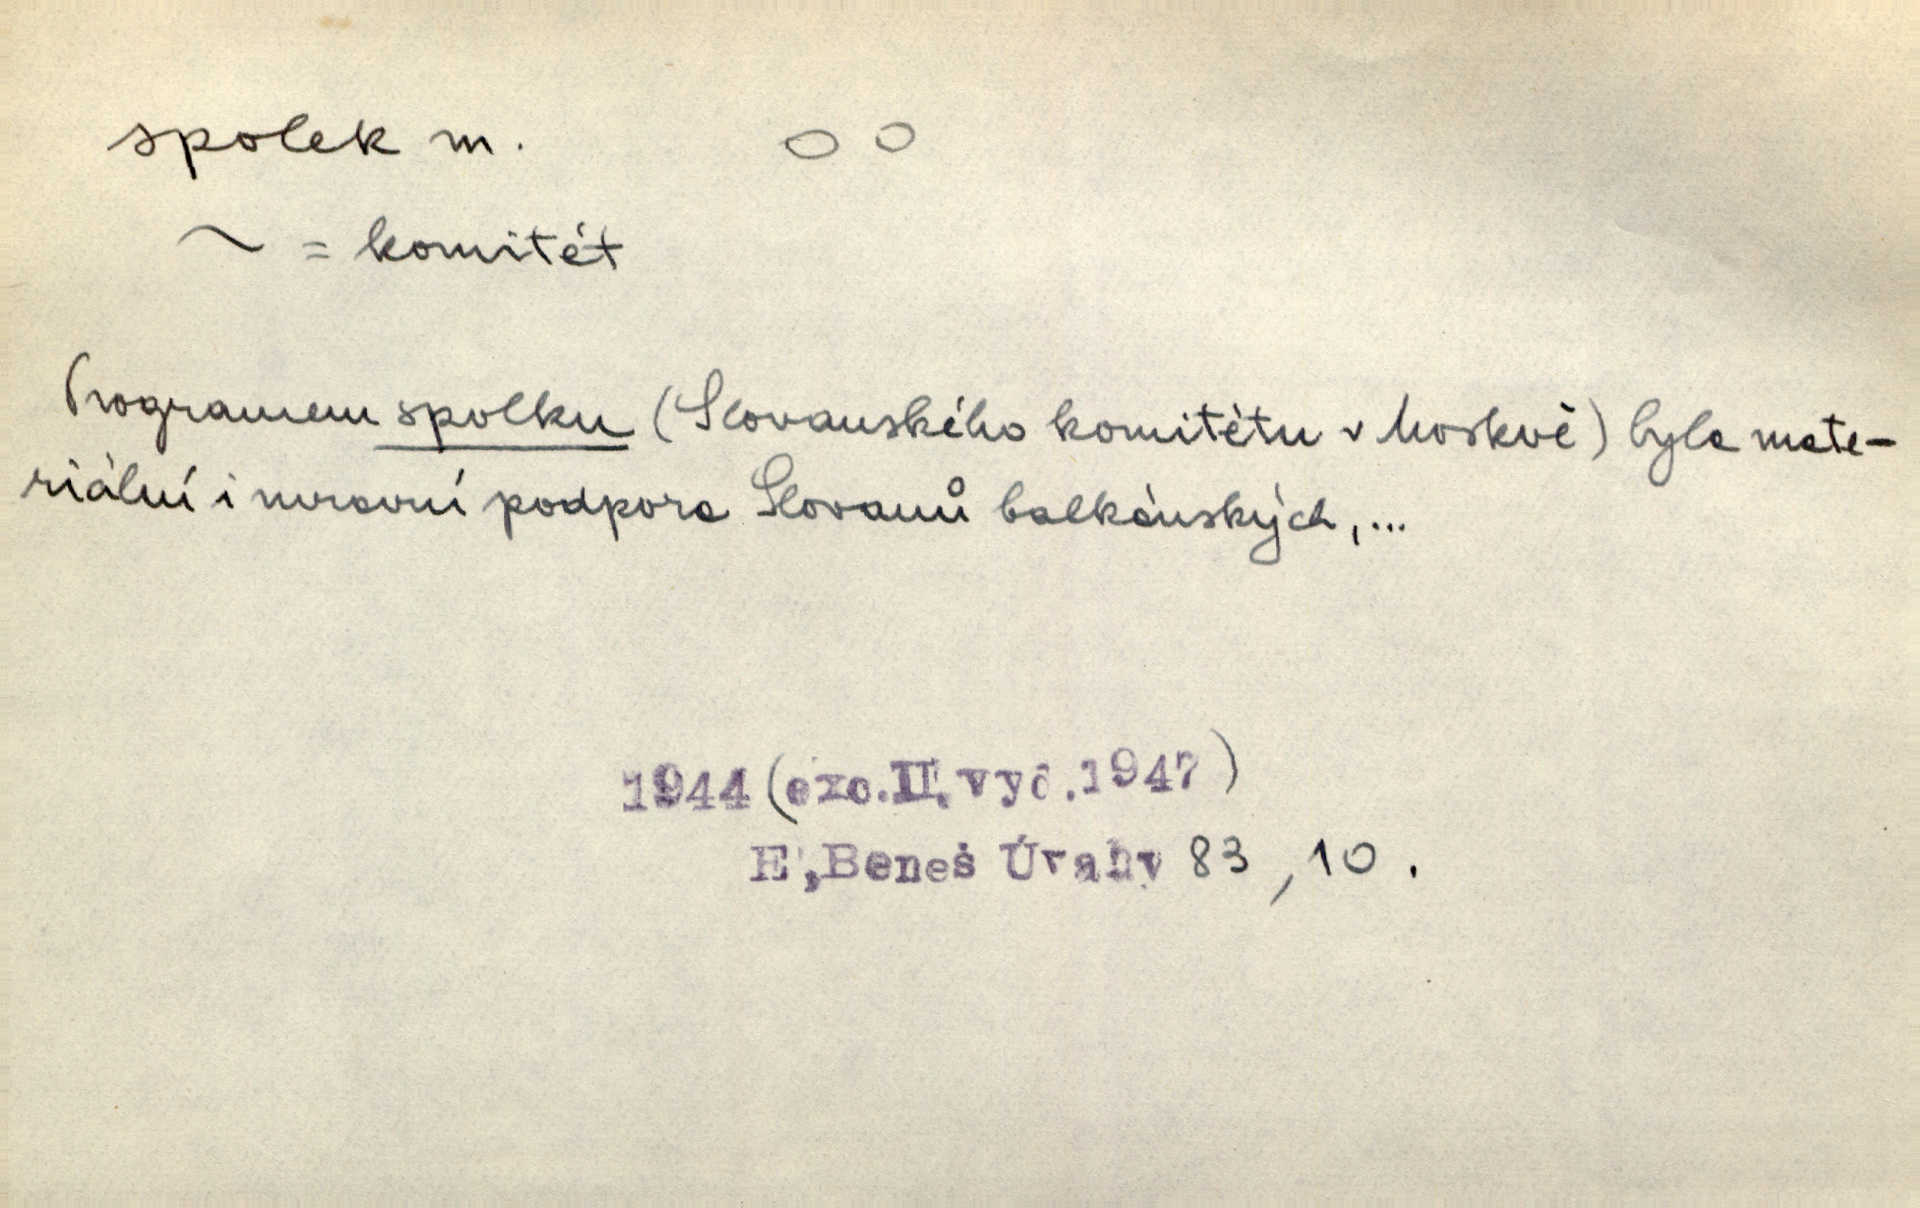 spolek m. ○ ○
~ = komitét
Programem spolku (Slovanského komitétu v Moskvě) byla mate-
riální i mravní podpora Slovanů balkánských, ...
1944 (exc. II. vyd. 1947)
E. Beneš Úvahy 83, 10.